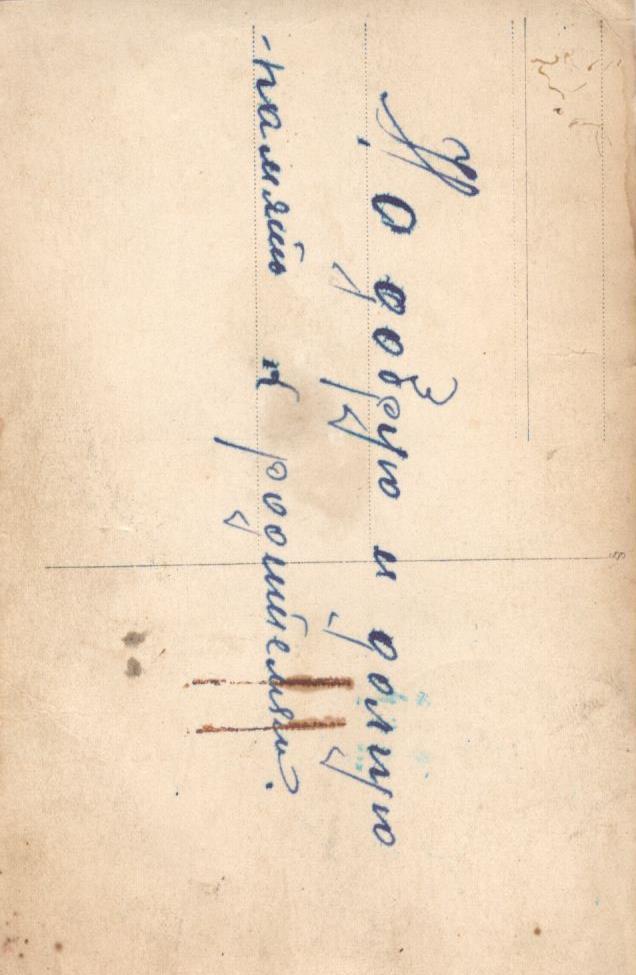 Но добрую и долгую
-память к родителям.